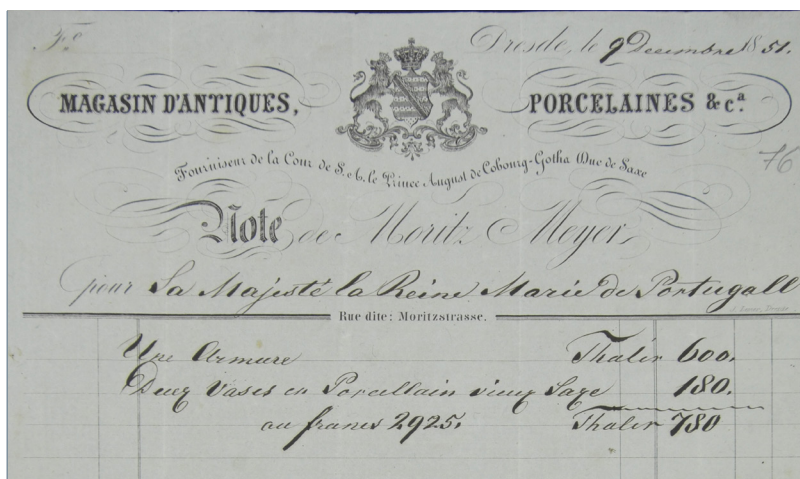 Fo.
Dresde, le 9 Decembre 1851.
MAGASIN D'ANTIQUES, PORCELAINES & ca.
76
Fournisseur de la Cour de S. A. le Prince August de Cobourg-Gotha Duc de Saxe
Note de Moritz Meyer
pour La Majesté la Reine Marie de Portugall
Rue dite: Moritzstrasse.
Une Armure Thaler 600.
Deux Vases en Porcellain vieux Saxe 180.
au francs 2925. Thaler 780